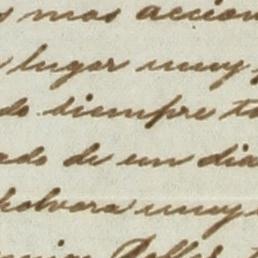 mas accion
lugar muy
do siempre to
ado de un dia
polvora muy